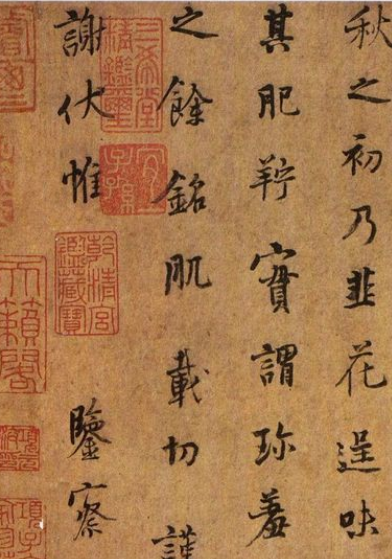 秋之初乃韭花逞味
其肥羜實謂珍羞
之餘銘肌載切謹
謝伏惟
鑒察
三希堂
精鑑璽
宜
子孫
乾清宮
鑑藏寶
天籟閣